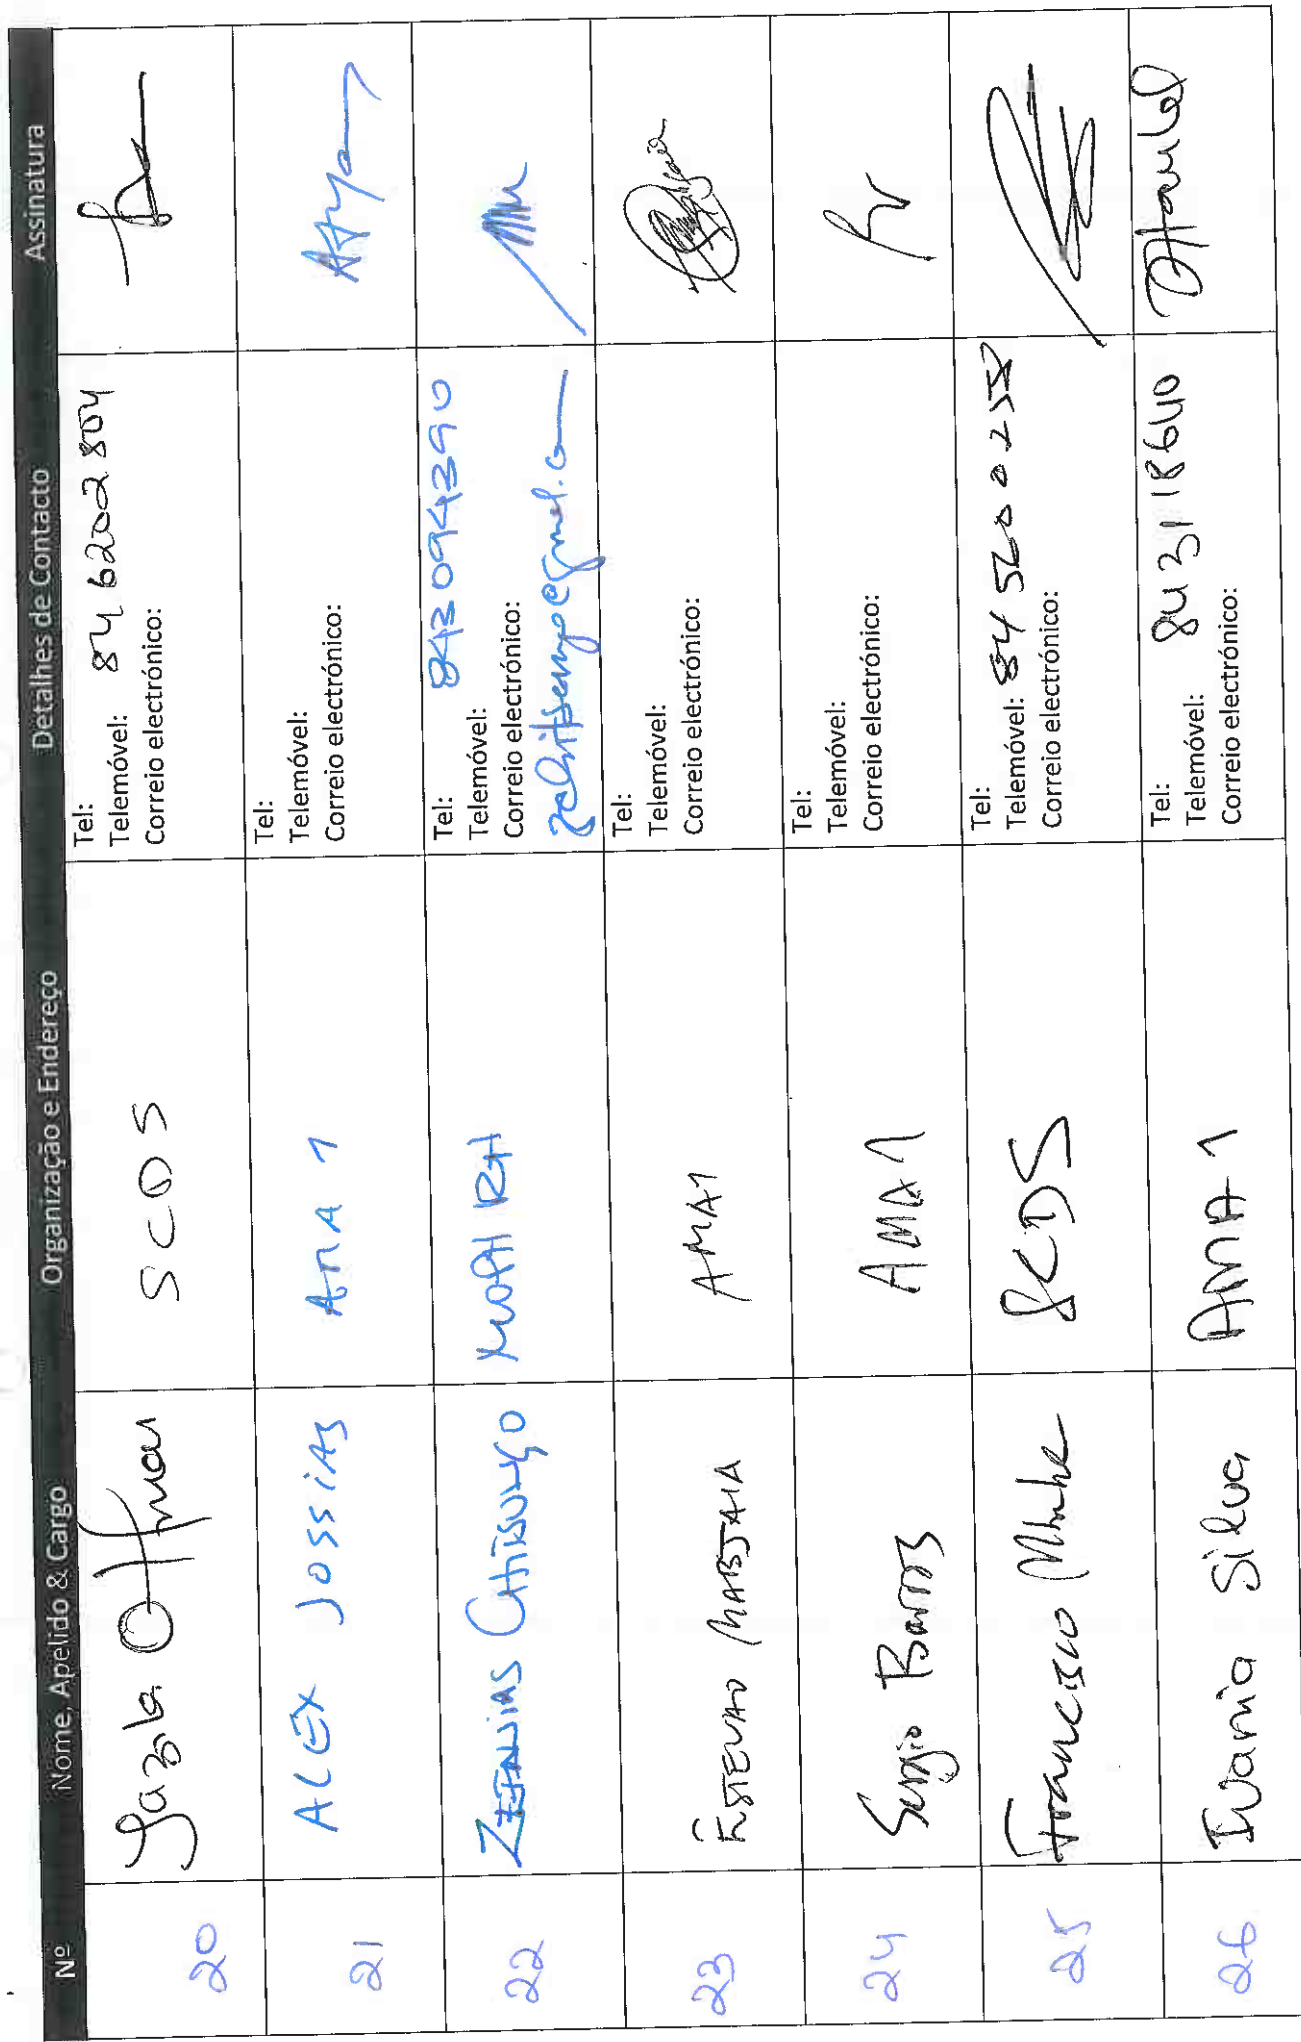 Nº Nome, Apelido & Cargo Organização e Endereço Detalhes de Contacto Assinatura
20 Omar SCDS Tel:
Telemóvel: 846202804
Correio electrónico:
21 ALEX JOSSIAS AMA 1 Tel:
Telemóvel:
Correio electrónico:
22 ZEFANIAS CHITSUNGO MOPHRH Tel: 843094390
Telemóvel:
Correio electrónico:
23 ESTEVAO MABJAIA AMA1 Tel:
Telemóvel:
Correio electrónico:
24 Sergio Barros AMA1 Tel:
Telemóvel:
Correio electrónico:
25 Francisco SCDS Tel:
Telemóvel:
Correio electrónico:
26 Ivania Silva AMA 1 Tel:
Telemóvel: 843118640
Correio electrónico: